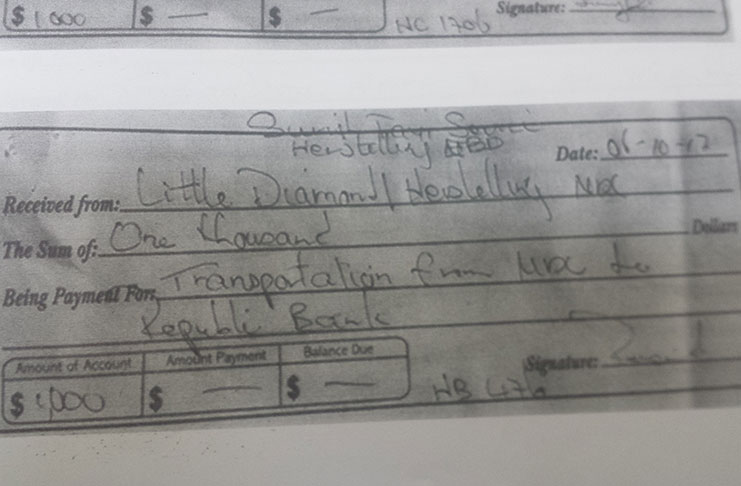 $ 1000 $ — $ —
HC 1706 Signature:
Herstelling EBD
Date: 06-10-12
Received from: Little Diamond / Herstelling NDC
The Sum of: One thousand Dollars
Being Payment For: Transpotation from NDC to
Republic Bank
Amount of Account Amount Payment Balance Due
$ 1,000 $ — $ —
Signature:
HB